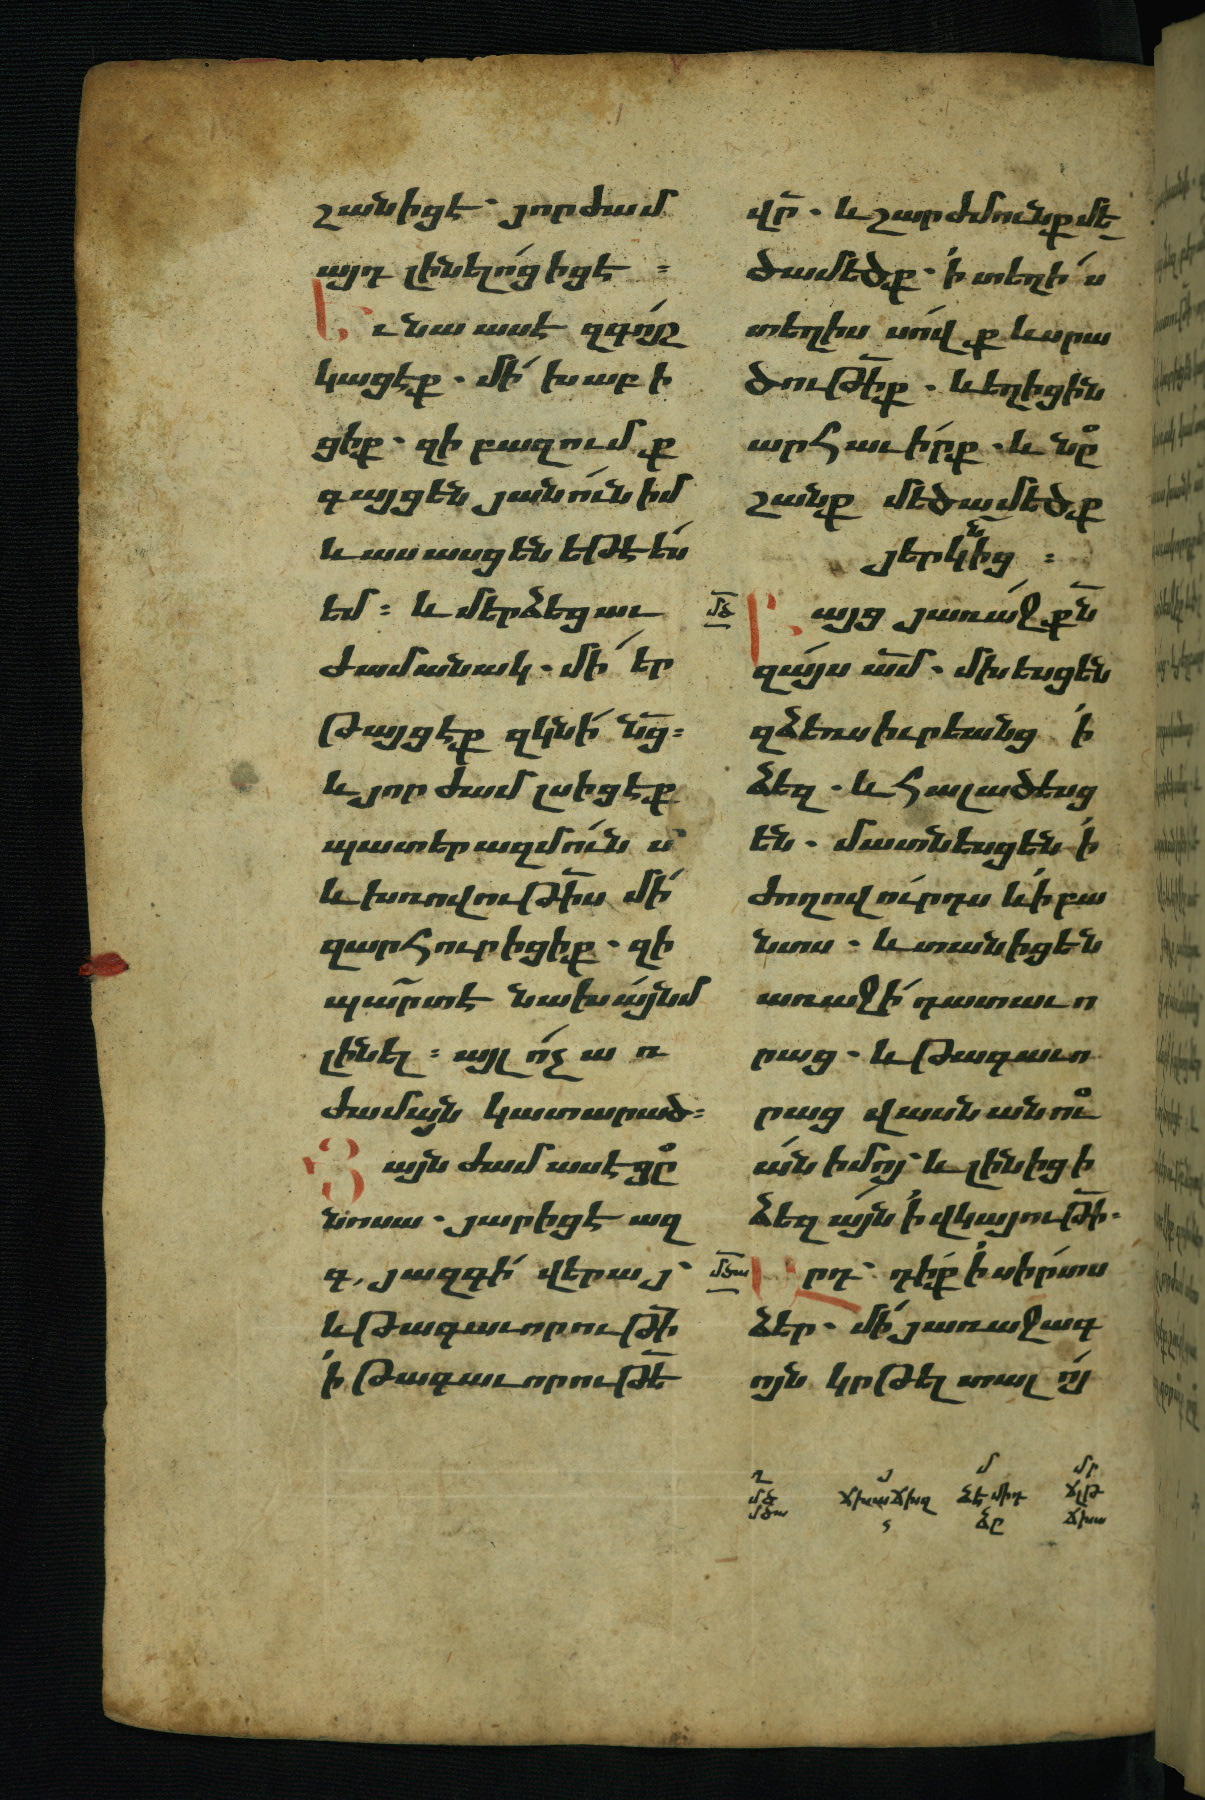 շանիցէ՝ յորժամ
այդ լինելո՛ց իցէ ։
Եւ նա ասէ զգո՛յշ
կացէք. մի՛ խաբի
ցիք. զի բազումք
գայցեն յանո՛ւն իմ
և ասասցեն եթէ ե՛ս
եմ ։ և մերձեցաւ
ժամանակ. մի՛ եր
թայցէք զկնի՛ նց̄ ։
և յորժամ լսիցէք
պատերազմո՛ւնս
և խռովութի̄ս մի՛
զարհուրիցիք. զի
պա̄րտ է նախ ա՛յնմ
լինել ։ այլ ո՛չ առ
ժամայն կատարած ։
Յայն ժամ ասէ ցը
նոսա. յարիցէ ազ
գ, յազգի՛ վերայ՝
և թագաւորութի̄
ի՛ թագաւորութե̄
վր̄. և շարժմունք մե
ծամեծք. ի՛ տեղի՛ս
տեղիս սո՛վք և սրա
ծութի̄ք. և եղիցին
արհաւի՛րք. և նը
շանք մեծամեծք
յերկնից ։
մծ̄ Բայց յառա՛ջ քն̄
զա՛յս ա̄մ. մխեսցեն
զձեռս իւրեանց ի՛
ձեզ. և հալածեսց
են. մատնեսցեն ի՛
ժողովո՛ւրդս և ի՛ բա
նտս. և տանիցեն
առաջի՛ դատաւո
րաց. և թագաւո
րաց վասն անու
ա՛ն իմոյ՝ և լինիցի
ձեզ ա՛յն ի՛ վկայութի̄.
մծա̄ Արդ՝ դի՛ք ի՛ սի՛րտս
ձեր. մի՛ յառաջագ
ոյն կրթել տալ ո՛յ
ղ յ մ մր
մծ ճխա ճխզ ձէ միդ ճլթ
մծա ձը ճխա